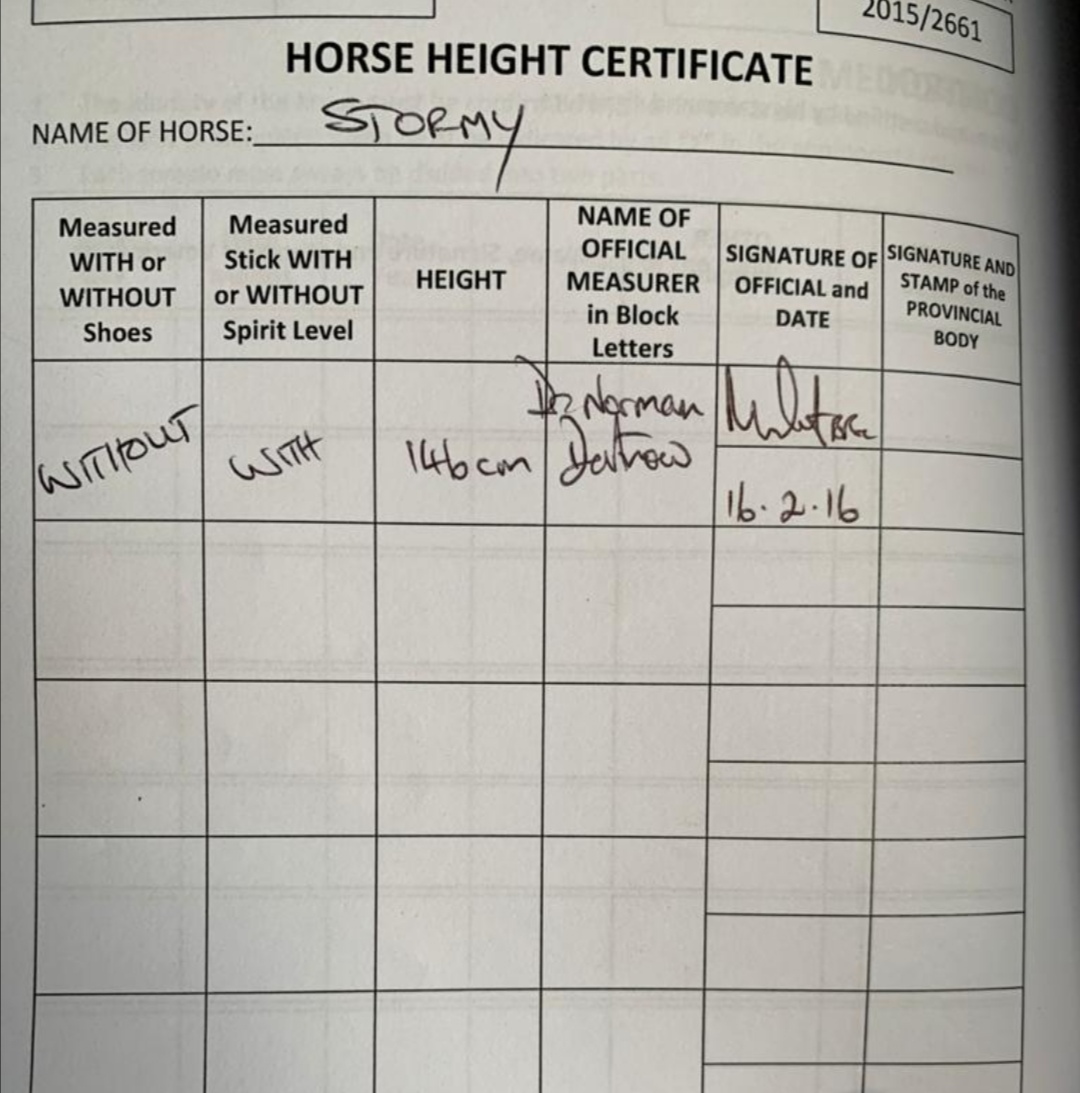 2015/2661
HORSE HEIGHT CERTIFICATE
NAME OF HORSE: STORMY
Measured
WITH or
WITHOUT
Shoes
Measured
Stick WITH
or WITHOUT
Spirit Level
HEIGHT
NAME OF
OFFICIAL
MEASURER
in Block
Letters
SIGNATURE OF
OFFICIAL and
DATE
SIGNATURE AND
STAMP of the
PROVINCIAL
BODY
WITHOUT
WITH
146cm
Dr Norman
16.2.16